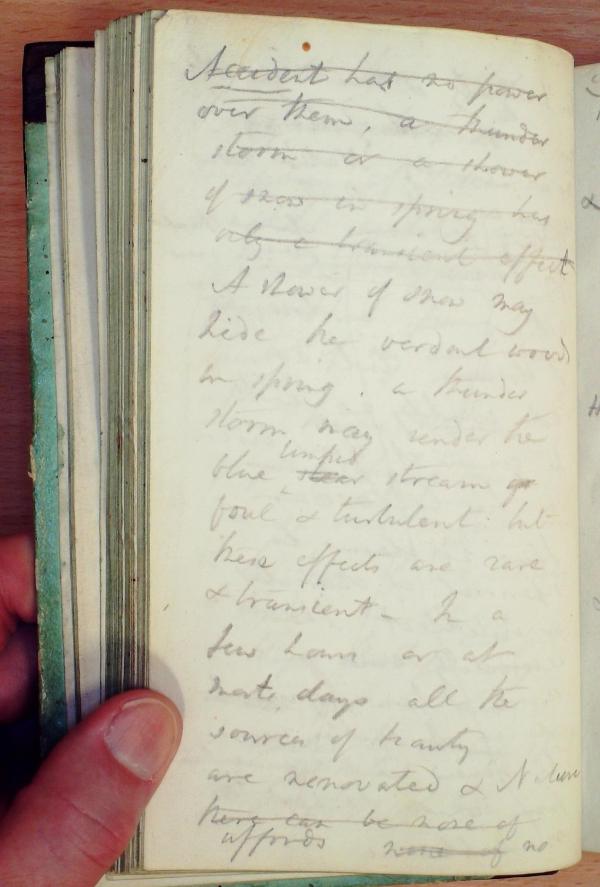 Accident has no power
over them, a thunder
storm or a shower
of snow in spring has
only a transient effect
A shower of snow may
hide the verdant wood
in spring . a thunder
storm may render the
limpid
blue clear stream
foul & turbulent : but
these effects are rare
& transient – In a
few hours or at
most days all the
sources of beauty
are renovated & Nature
there can be none of
affords none of no